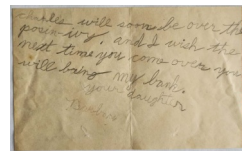 charles will soon be over the
poison-ivy. and I wish the
next time you come over you
will bring my bank.
your daughter